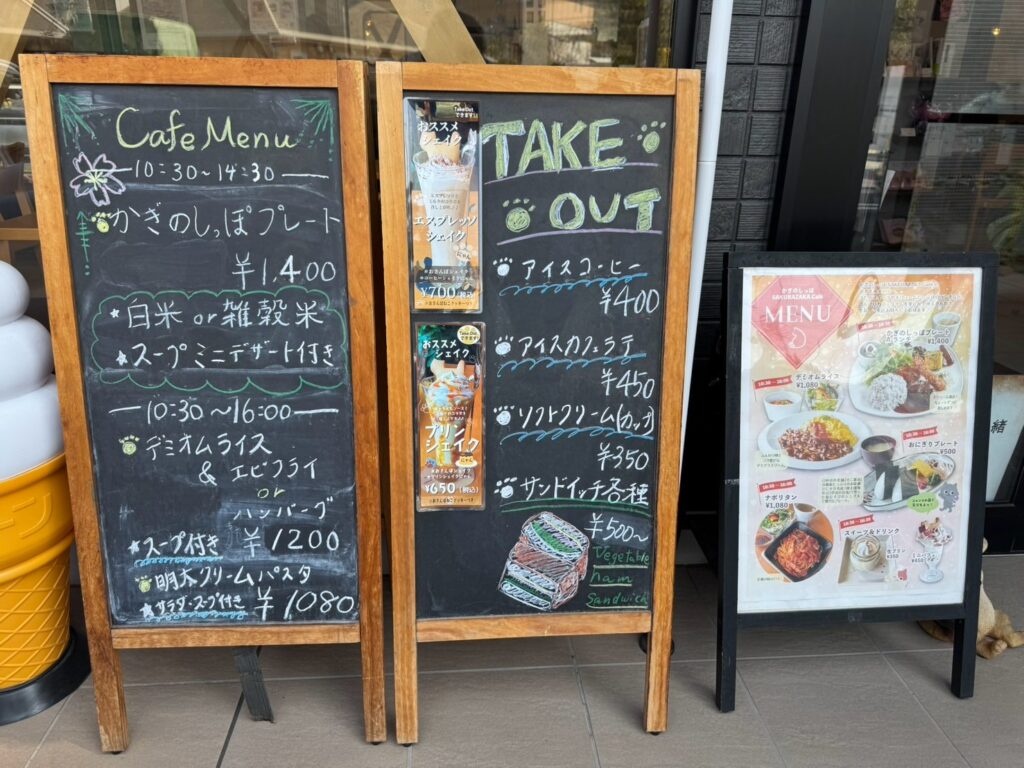 Cafe Menu
10:30~14:30
かぎのしっぽプレート
¥1,400
白米 or 雑穀米
スープミニデザート付き
10:30~16:00
デミオムライス
& エビフライ
or
ハンバーグ
スープ付き ¥1200
明太クリームパスタ
サラダ・スープ付き ¥1080
TAKE
OUT
アイスコーヒー
¥400
アイスカフェラテ
¥450
ソフトクリーム(カップ)
¥350
サンドイッチ各種
¥500~
Vegetable
ham
Sandwich
Take Out
できます!
おススメ
シェイク
エスプレッソ
シェイク
¥700(税込)
Take Out
できます!
おススメ
シェイク
プリン
シェイク
¥650(税込)
かぎのしっぽ
SAKURAZAKA Cafe
MENU
かぎのしっぽプレート
¥1,400
10:30~16:00
デミオムライス
¥1,080
10:30~16:00
おにぎりプレート
¥500
10:30~16:00
ナポリタン
¥1,080
10:30~16:00
スイーツ&ドリンク
緒